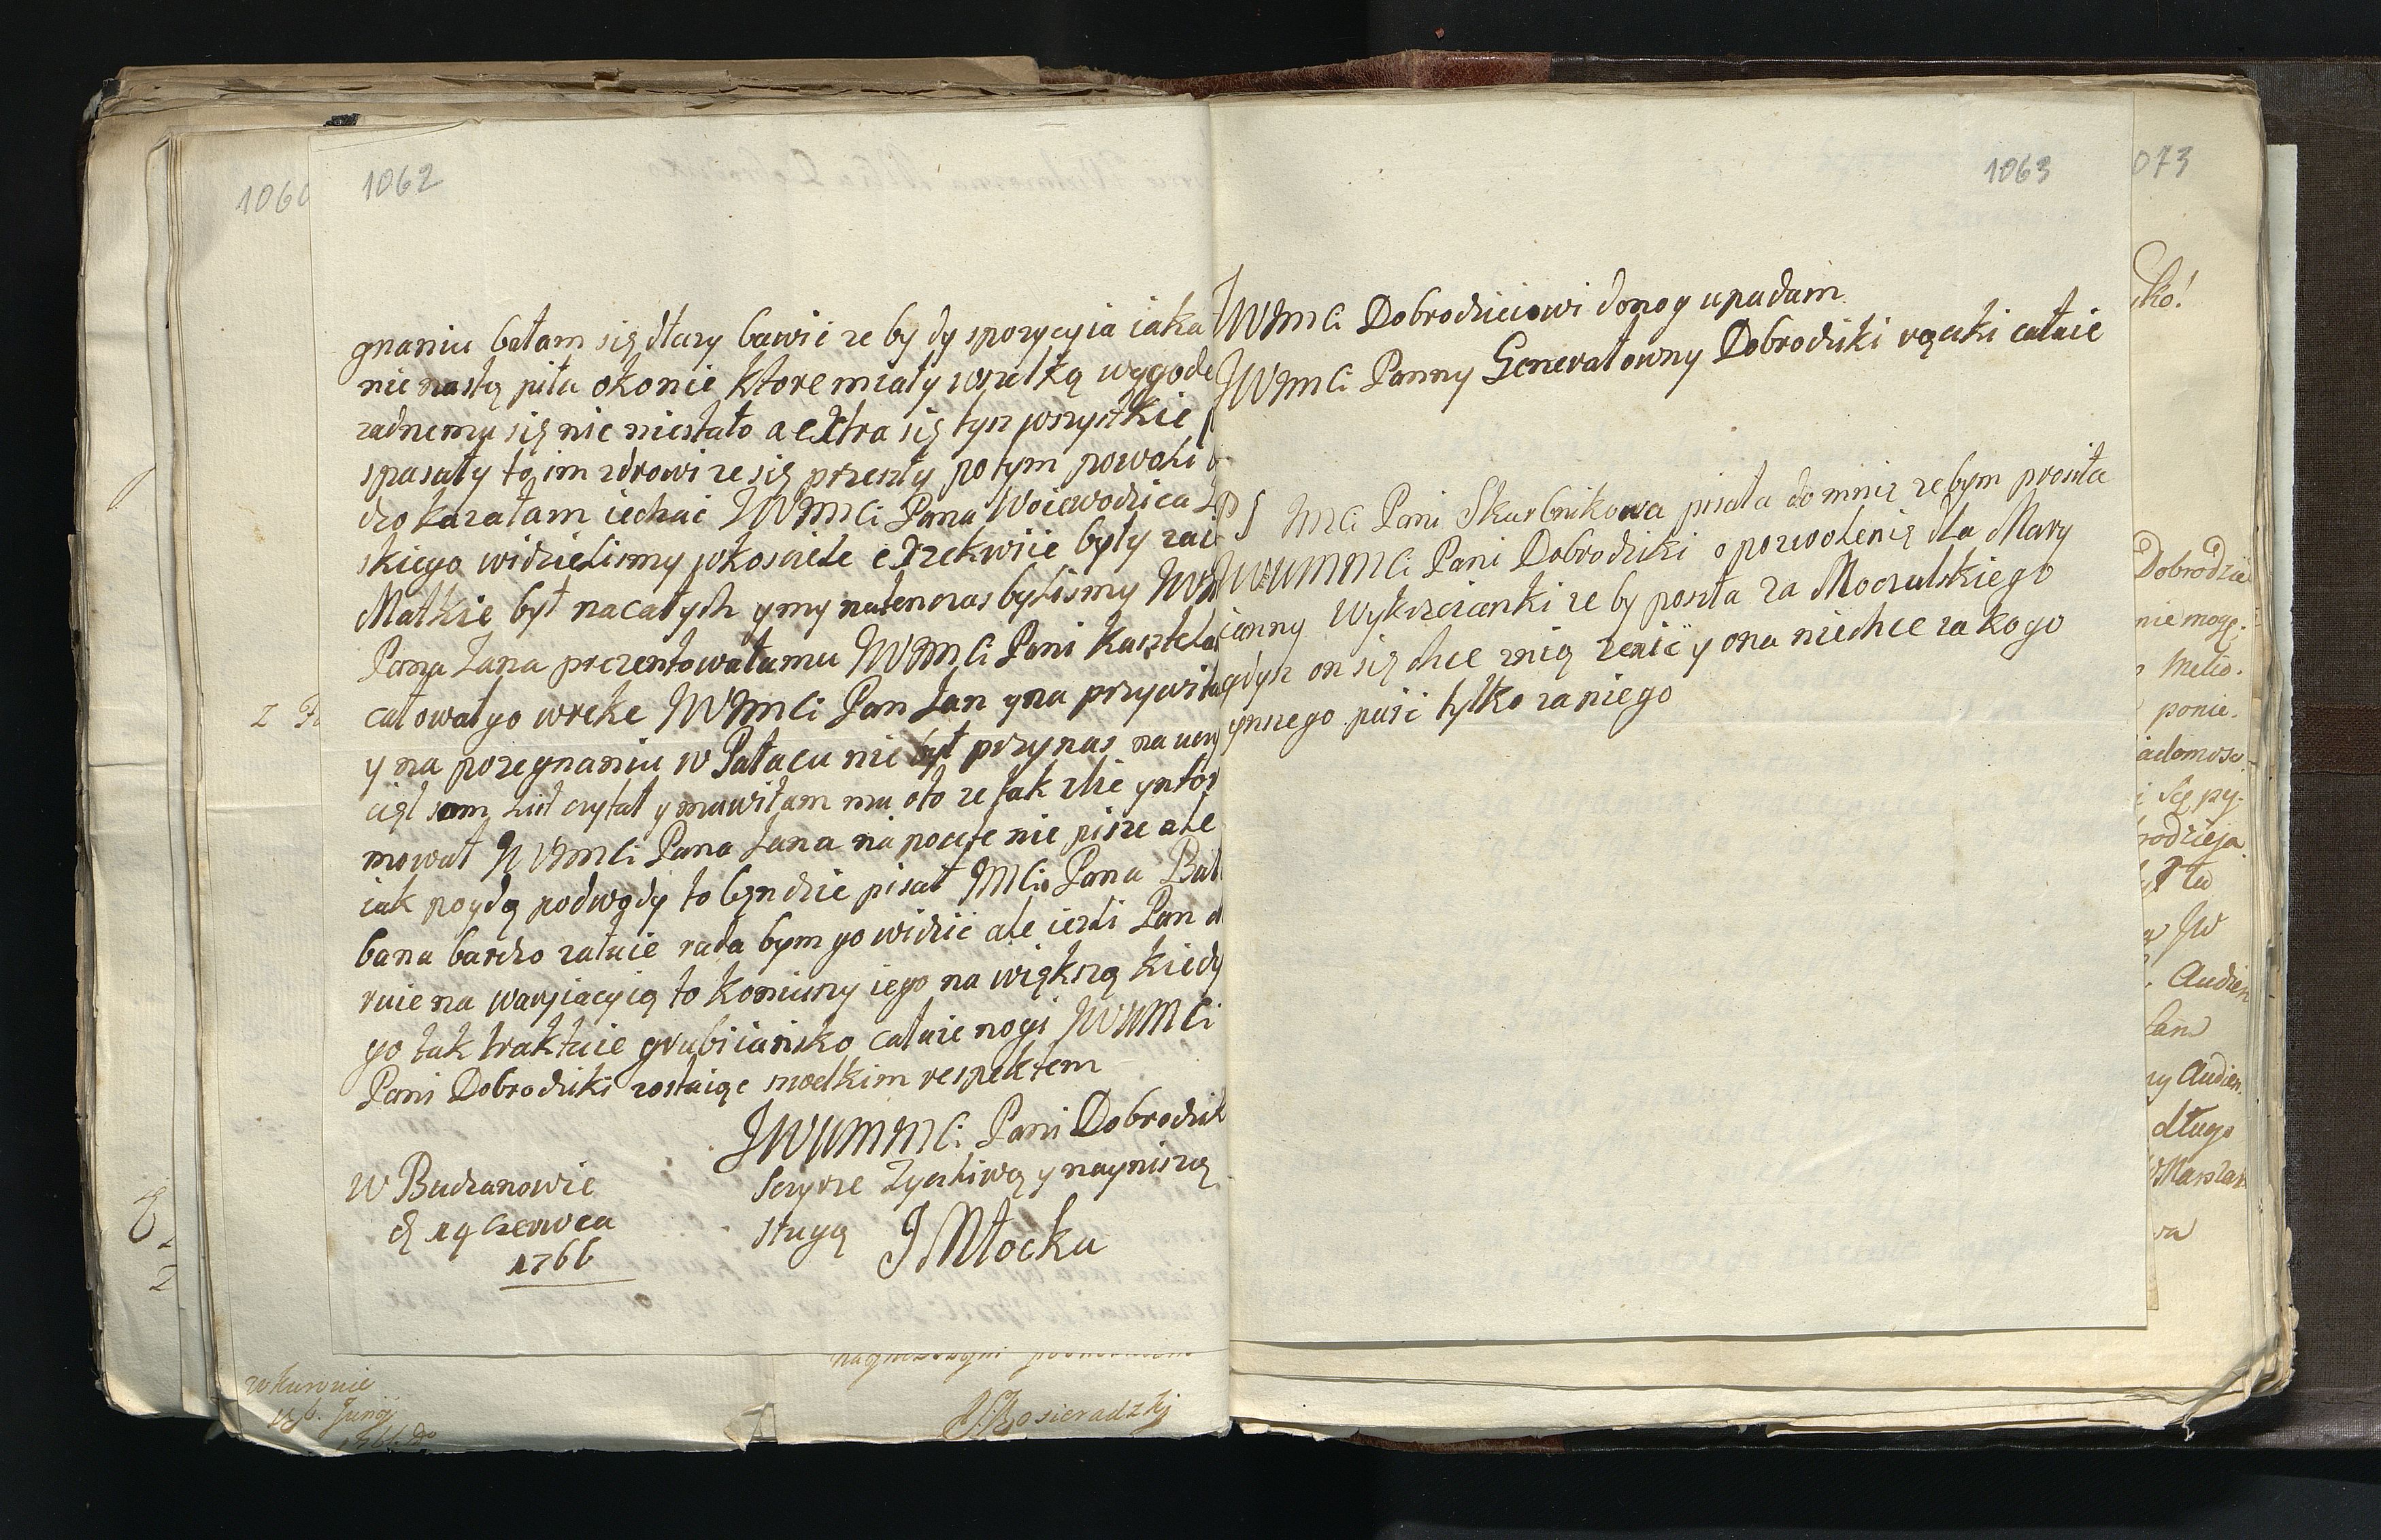 1062
gnaniu bałam się dłuzy bawić ze by dy spozycyia iaka
nie nastą piła okonie ktore miały wszelką wygode
zadnemu się nic niestało a extra się tysz wszystkie
spasały tą im zdrowi ze się przeszły potym powoli
dzo kazałam iechać JWmci Pana Woiewodzica
skiego widzielismy wkosciele exzekwiie były zai
Matkie był nacałych y my natenczas bylismy JWm
Pana Jana prezentowałamu JWmci Pani Kasztela
całował go wreke JWmci Pan Jan yna przywita
y na pozegnaniu w Pałacu nie był przynas na ucz
ciął sam list czytał y mowiłam mu oto ze tak zlie ynfor
mował JWmci Pana Jana na poczte nie pisze ale
iak poydą podwody to będzie pisał Mci Pana Bał
bana bardzo załuie rada bym go widzić ale iezli Pan
ruie na waryiacyią to koniuszy iego na większą kiedy
go tak traktuie grubiiańsko całuie nogi JWWMMci
Pani Dobrodziki zostaiąc zwielkim respektem
JWWMMMci Pani Dobrodzik
W Budzanowie
Sczyrze Zyczliwą y nayniszą
d 19 Czerwca
sługą JMłocka
1766
w Kurowie
Junij
J Kosieradzkj
1063
JWmci Dobrodzieiowi donog upadam
JWmci Panny Generałowny Dobrodziki rączki całuie
PS Mci Pani Skarbnikowa pisała do mnię zebym prosiła
JWWMMMci Pani Dobrodziki o pozwolenię dla Mary
ianny Wykrzcianki ze by poszła za Moczulskiego
gdysz on się chce znią zenić y ona niechce za kogo
ynszego puść tylko za niego
073
Dobrodzie
nie mogę
ponie.
iadomosc
rodzieja
JW
Audien
Audien.
długo